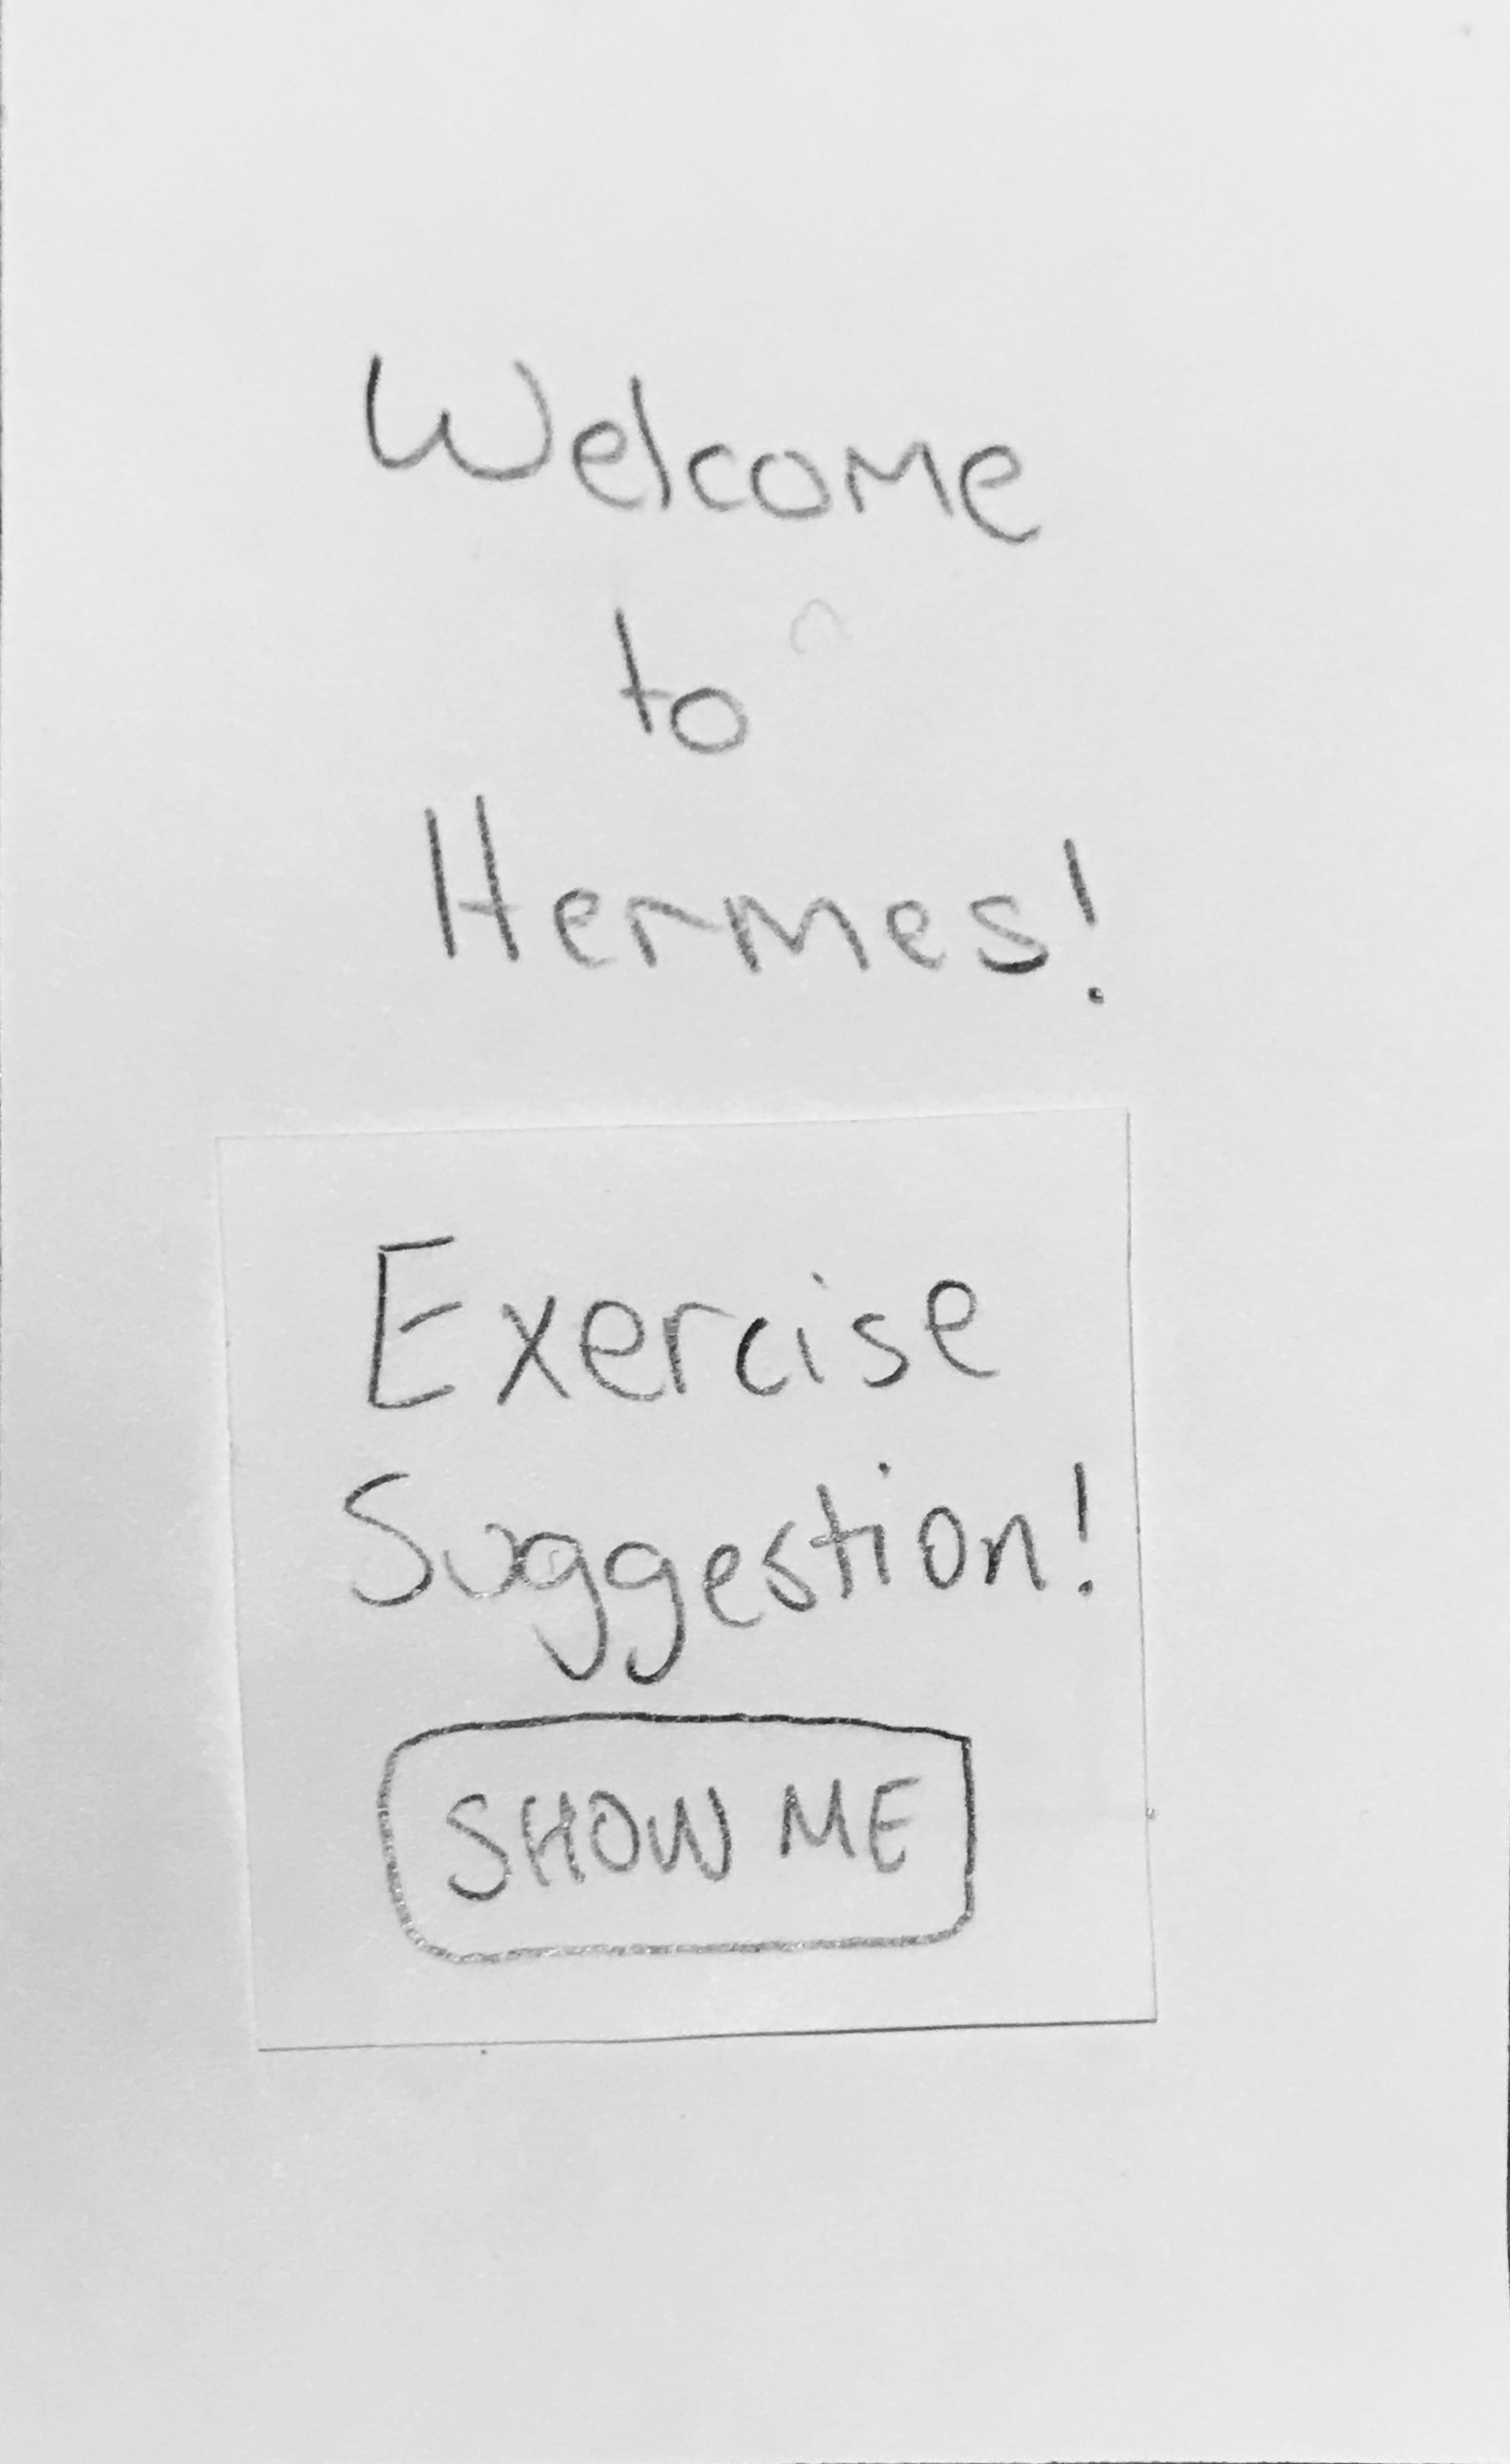 Welcome
to
Hermes!
Exercise
Suggestion!
SHOW ME